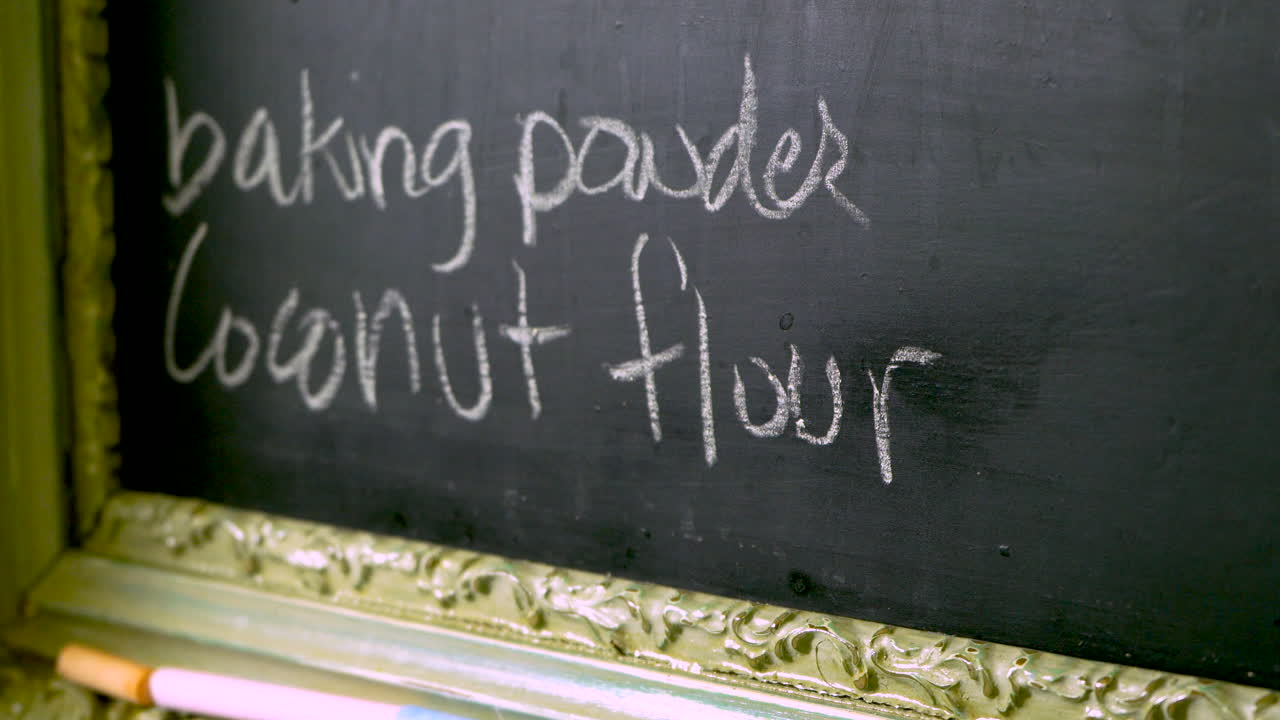 baking powder
Coconut flour